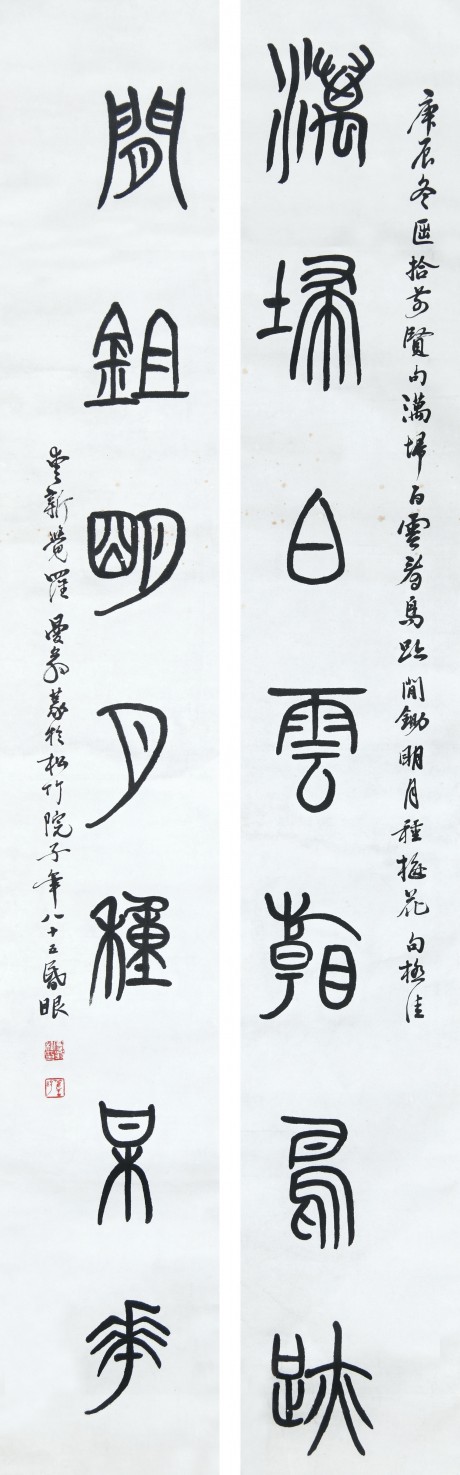 庚辰冬匧拾前賢句澫埽白雲看鳥跡閒鋤明月種梅花句極佳
澫埽白雲看鳥跡
閒鉏明月種某華
愛新覺羅曼翁篆於松竹院子年八十五昏眼